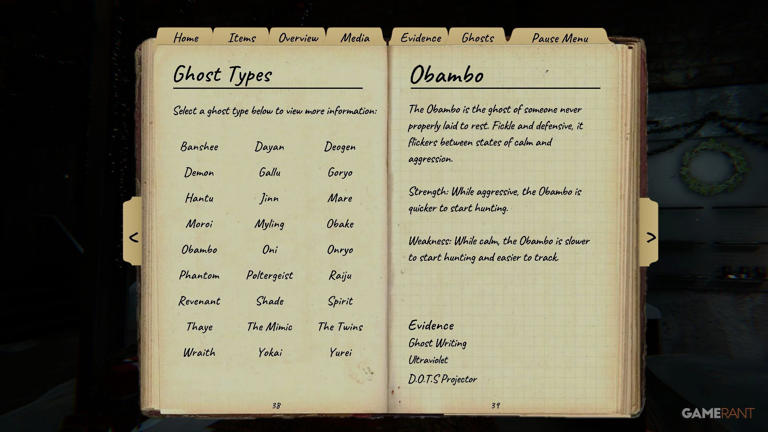 Home Items Overview Media Evidence Ghosts Pause Menu
Ghost Types
Select a ghost type below to view more information:
Banshee Dayan Deogen
Demon Gallu Goryo
Hantu Jinn Mare
Moroi Myling Obake
Obambo Oni Onryo
Phantom Poltergeist Raiju
Revenant Shade Spirit
Thaye The Mimic The Twins
Wraith Yokai Yurei
38
Obambo
The Obambo is the ghost of someone never
properly laid to rest. Fickle and defensive, it
flickers between states of calm and
aggression.
Strength: While aggressive, the Obambo is
quicker to start hunting.
Weakness: While calm, the Obambo is slower
to start hunting and easier to track.
Evidence
Ghost Writing
Ultraviolet
D.O.T.S Projector
39
< >
GAMERANT